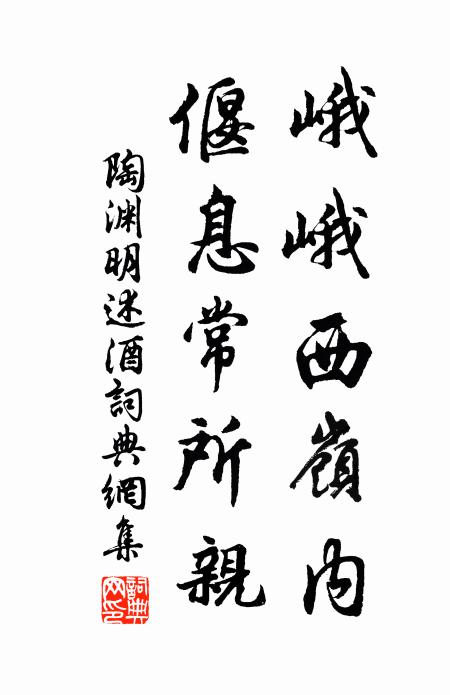 峨峨西嶺内
偃息常所親
陶渊明述酒詞典網集
詞典网印